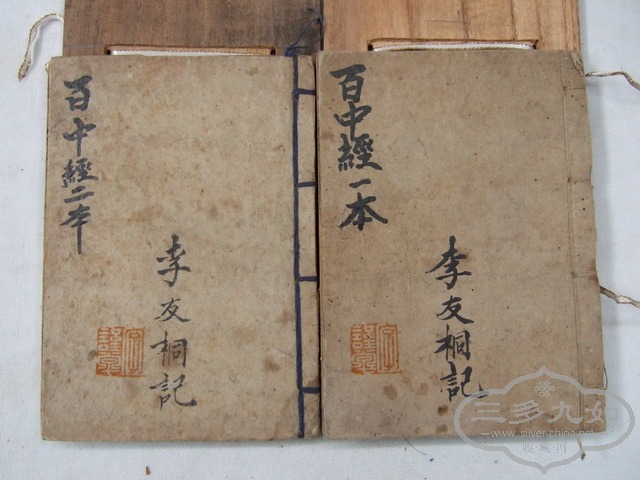 百中經一本
李友桐記
百中經二本
李友桐記
三多九如
www.silver-china.net